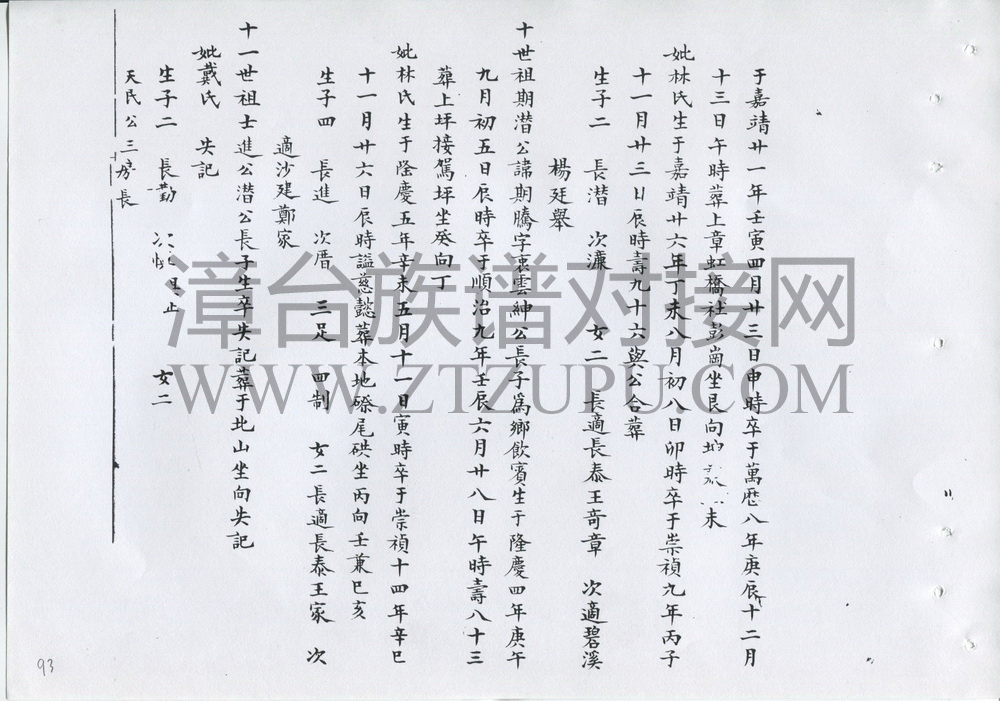 于嘉靖廿一年壬寅四月廿三日申時卒于萬曆八年庚辰十二月
十三日午時葬上章虹橋社彭崮坐艮向坤未
妣林氏生于嘉靖廿六年丁未八月初八日卯時卒于崇禎九年丙子
十一月廿三日辰時壽九十六與公合葬
生子二 長潜 次濂 女二 長適長泰王奇章 次適碧溪
楊廷舉
十世祖期潜公諱期騰字衷雲紳公長子為鄉飲賓生于隆慶四年庚午
九月初五日辰時卒于順治九年壬辰六月廿八日午時壽八十三
葬上坪接駕坪坐癸向丁
妣林氏生于隆慶五年辛未五月十一日寅時卒于崇禎十四年辛巳
十一月廿六日辰時謚慈懿葬本地磜尾硔坐丙向壬兼巳亥
生子四 長進 次厝 三足 四制 女二長適長泰王家 次
適沙建鄭家
十一世祖士進公潜公長子生卒失記葬于北山坐向失記
妣戴氏 失記
生子二 長勤 次 止 女二
天民公三房長
漳台族谱对接网
WWW.ZTZUPU.COM
93